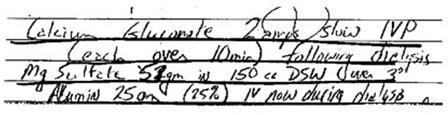 Calcium Gluconate 2 amps slow IVP
(each over 10min) following dialysis
Mg Sulfate 5 gm in 150 cc D5W over 3°
Albumin 25 gm (25%) IV now during dialysis